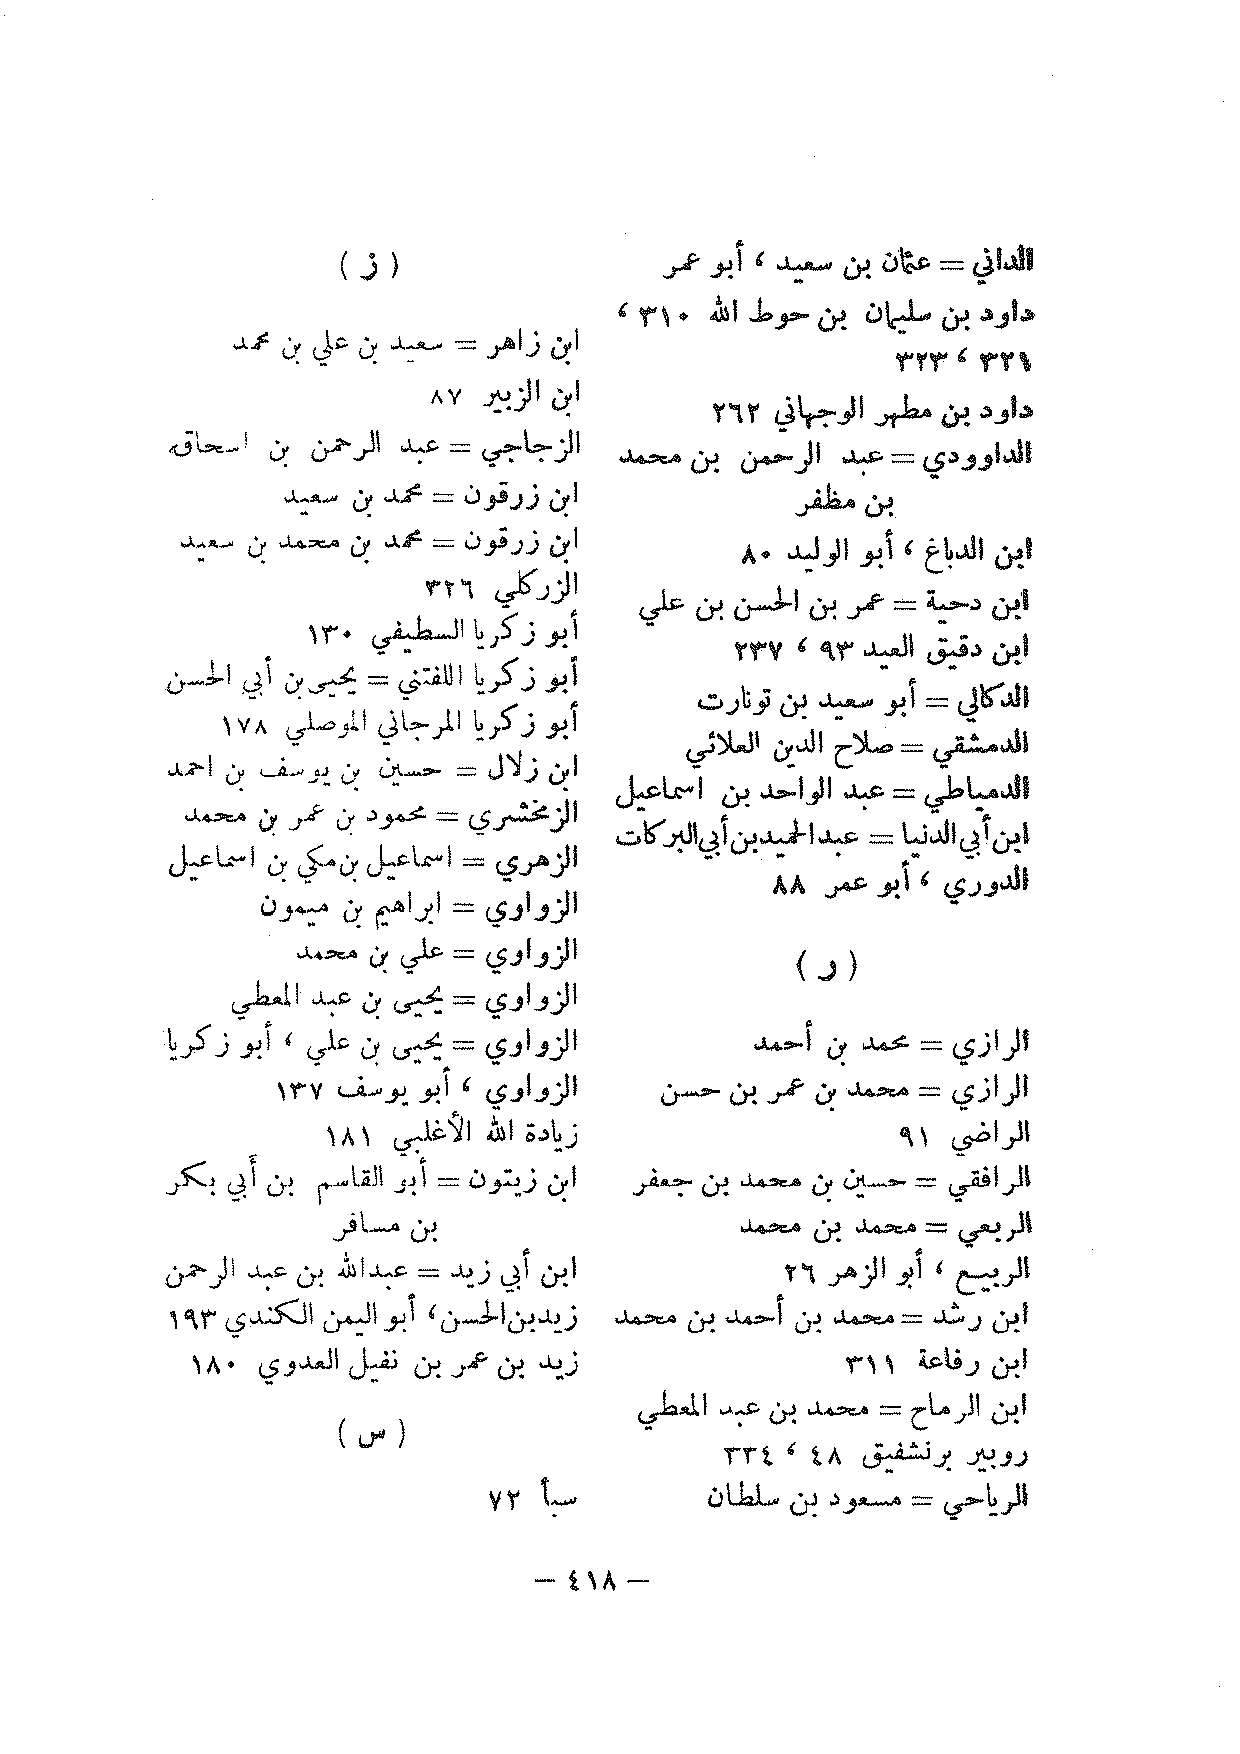 الداني = عثمان بن سعيد ، أبو عمر
داود بن سليمان بن حوط الله ٣١٠ ،
٣٢٣ ، ٣٢٩
داود بن مطهر الوجهاني ٢٦٢
الداوودي = عبد الرحمن بن محمد
بن مظفر
ابن الدباغ ، أبو الوليد ٨٠
ابن دحية = عمر بن الحسن بن علي
ابن دقيق العيد ٩٣ ، ٢٣٧
الدكالي = أبو سعيد بن تونارت
الدمشقي = صلاح الدين العلائي
الدمياطي = عبد الواحد بن اسماعيل
ابن أبي الدنيا = عبد الحميد بن أبي البركات
الدوري ، أبو عمر ٨٨
( ر )
الرازي = محمد بن أحمد
الرازي = محمد بن عمر بن حسن
الراضي ٩١
الرافقي = حسين بن محمد بن جعفر
الربعي = محمد بن محمد
الربيع ، أبو الزهر ٢٦
ابن رشد = محمد بن أحمد بن محمد
ابن رفاعة ٣١١
ابن الرماح = محمد بن عبد المعطي
روبير برنشفيق ٤٨ ، ٣٣٤
الرياحي = مسعود بن سلطان
( ز )
ابن زاهر = سعيد بن علي بن محمد
ابن الزبير ٨٧
الزجاجي = عبد الرحمن بن اسحاق
ابن زرقون = محمد بن سعيد
ابن زرقون = محمد بن محمد بن سعيد
الزركلي ٣٢٦
أبو زكريا السطيفي ١٣٠
أبو زكريا اللفتني = يحيى بن أبي الحسن
أبو زكريا المرجاني الموصلي ١٧٨
ابن زلال = حسين بن يوسف بن احمد
الزمخشري = محمود بن عمر بن محمد
الزهري = اسماعيل بن مكي بن اسماعيل
الزواوي = ابراهيم بن ميمون
الزواوي = علي بن محمد
الزواوي = يحيى بن عبد المعطي
الزواوي = يحيى بن علي ، أبو زكريا
الزواوي ، أبو يوسف ١٣٧
زيادة الله الأغلبي ١٨١
ابن زيتون = أبو القاسم بن أبي بكر
بن مسافر
ابن أبي زيد = عبدالله بن عبد الرحمن
زيد بن الحسن ، أبو اليمن الكندي ١٩٣
زيد بن عمر بن نفيل العدوي ١٨٠
( س )
سبأ ٧٢
— ٤١٨ —